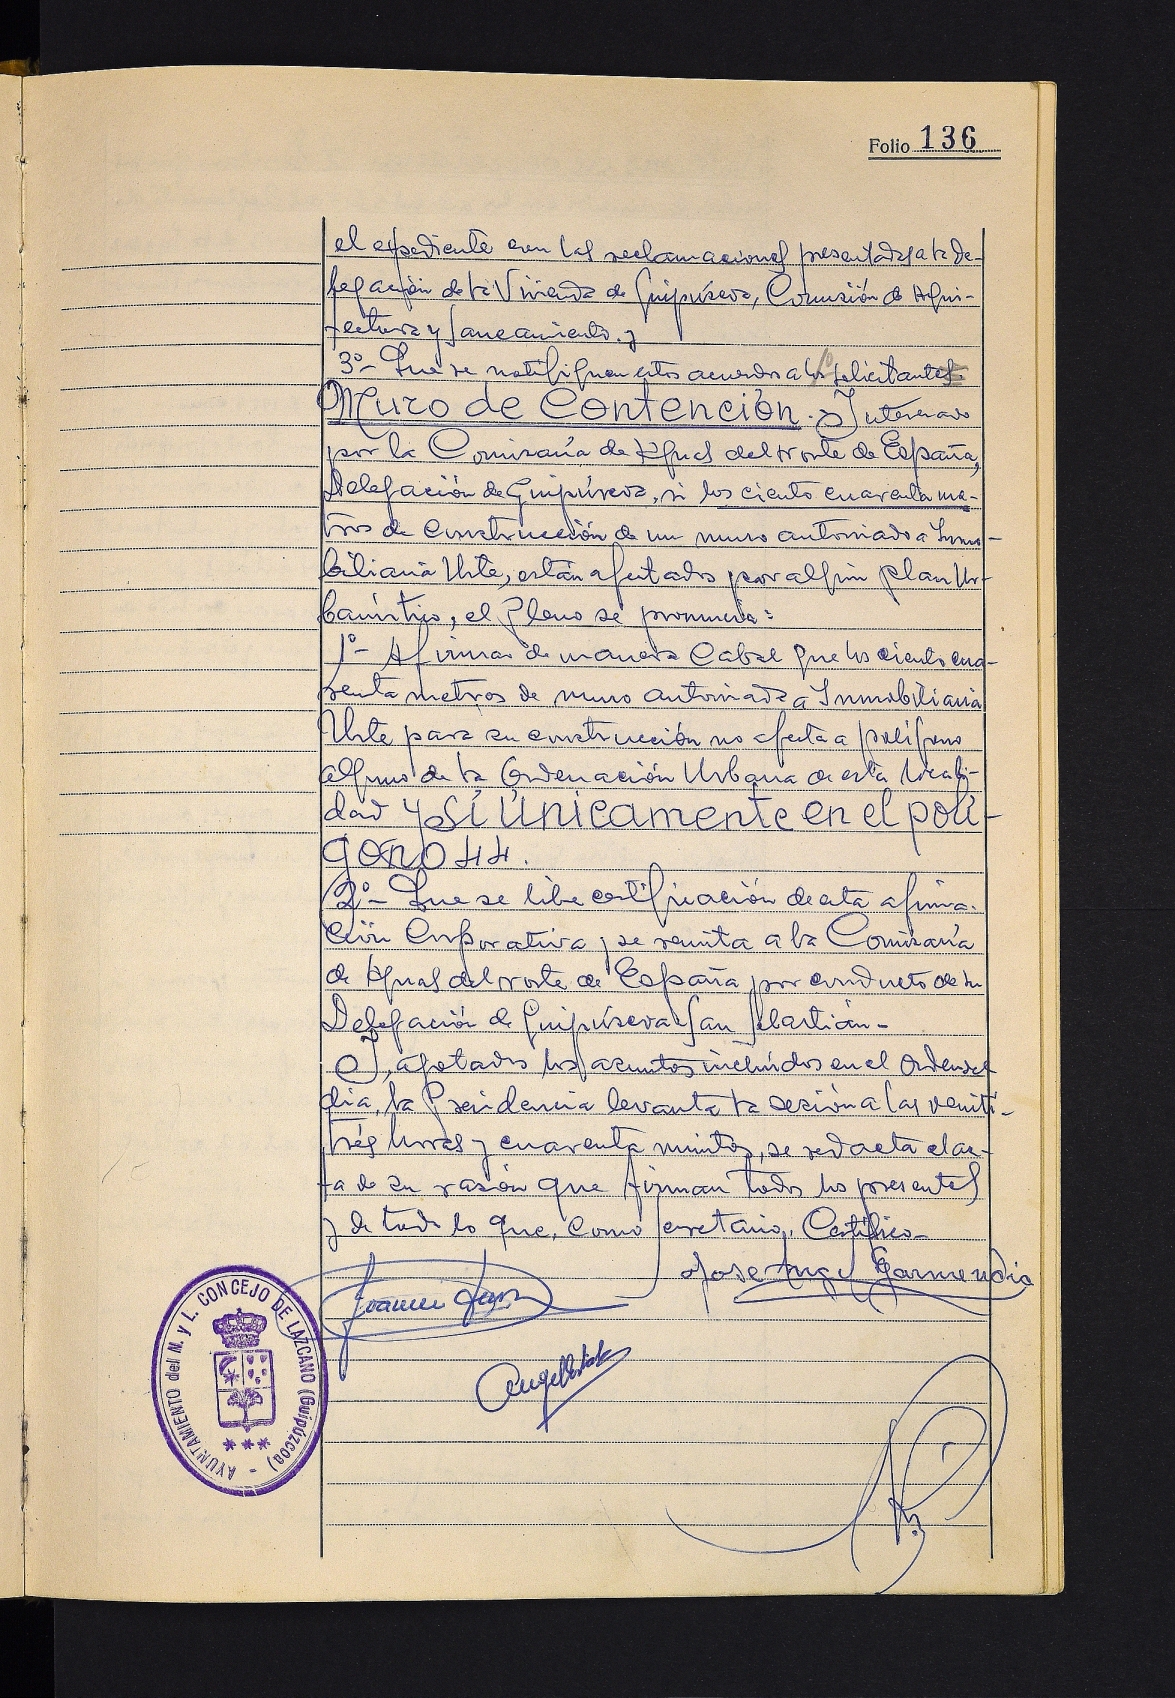 Folio 136
el expediente con las reclamaciones presentadas a la De-
legación de la Vivienda de Guipúzcoa, Comisión de Arqui-
tectura y Saneamiento. y
3º- Que se notifiquen estos acuerdos a los solicitantes
Muro de Contención. Interesado
por la Comisaría de Aguas del Norte de España,
Delegación de Guipúzcoa, si los ciento cuarenta me-
tros de construcción de un muro autorizado a Inmo-
biliaria Urte, están afectados por algún plan Ur-
banístico, el Pleno se pronuncia:
1º- Afirmar de manera Cabal que los ciento cua-
renta metros de muro autorizada a Inmobiliaria
Urte para su construcción no afecta a polígono
alguno de la Ordenación Urbana de esta locali-
dad y sí únicamente en el polí-
gono 44.
2º- Que se libe certificación de esta afirma-
ción Corporativa y se remita a la Comisaría
de Aguas del Norte de España por conducto de su
Delegación de Guipúzcoa San Sebastián-
Y, agotados los asuntos incluídos en el Orden del
día, la Presidencia levanta la sesión a las veinti-
trés horas y cuarenta minutos, se redacta el ac-
ta de su razón que firman todos los presentes
y de todo lo que, como Secretario, Certifico-
Jose Ang Garmendia
AYUNTAMIENTO del N. y L. CONCEJO DE LAZCANO (Guipúzcoa) -